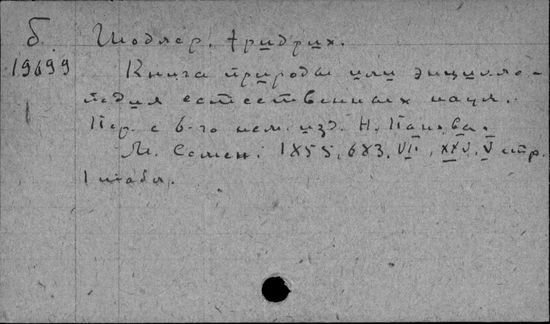 Б. Шодлер, Фридрих.
19699 Книга природы или энцикло-
педия естественных наук.
Пер. с 6-го нем. изд. Н. Панова.
М. Семен. 1855, 683, VII, XXV, V стр.
1 табл.